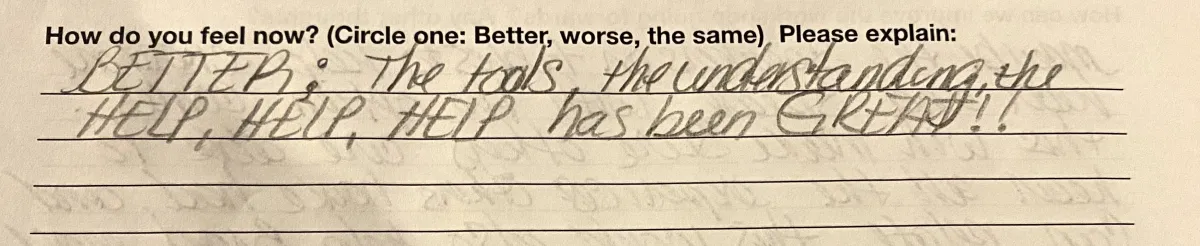 How do you feel now? (Circle one: Better, worse, the same) Please explain:
BETTER; The tools, the understanding, the
HELP, HELP, HELP has been GREAT!!